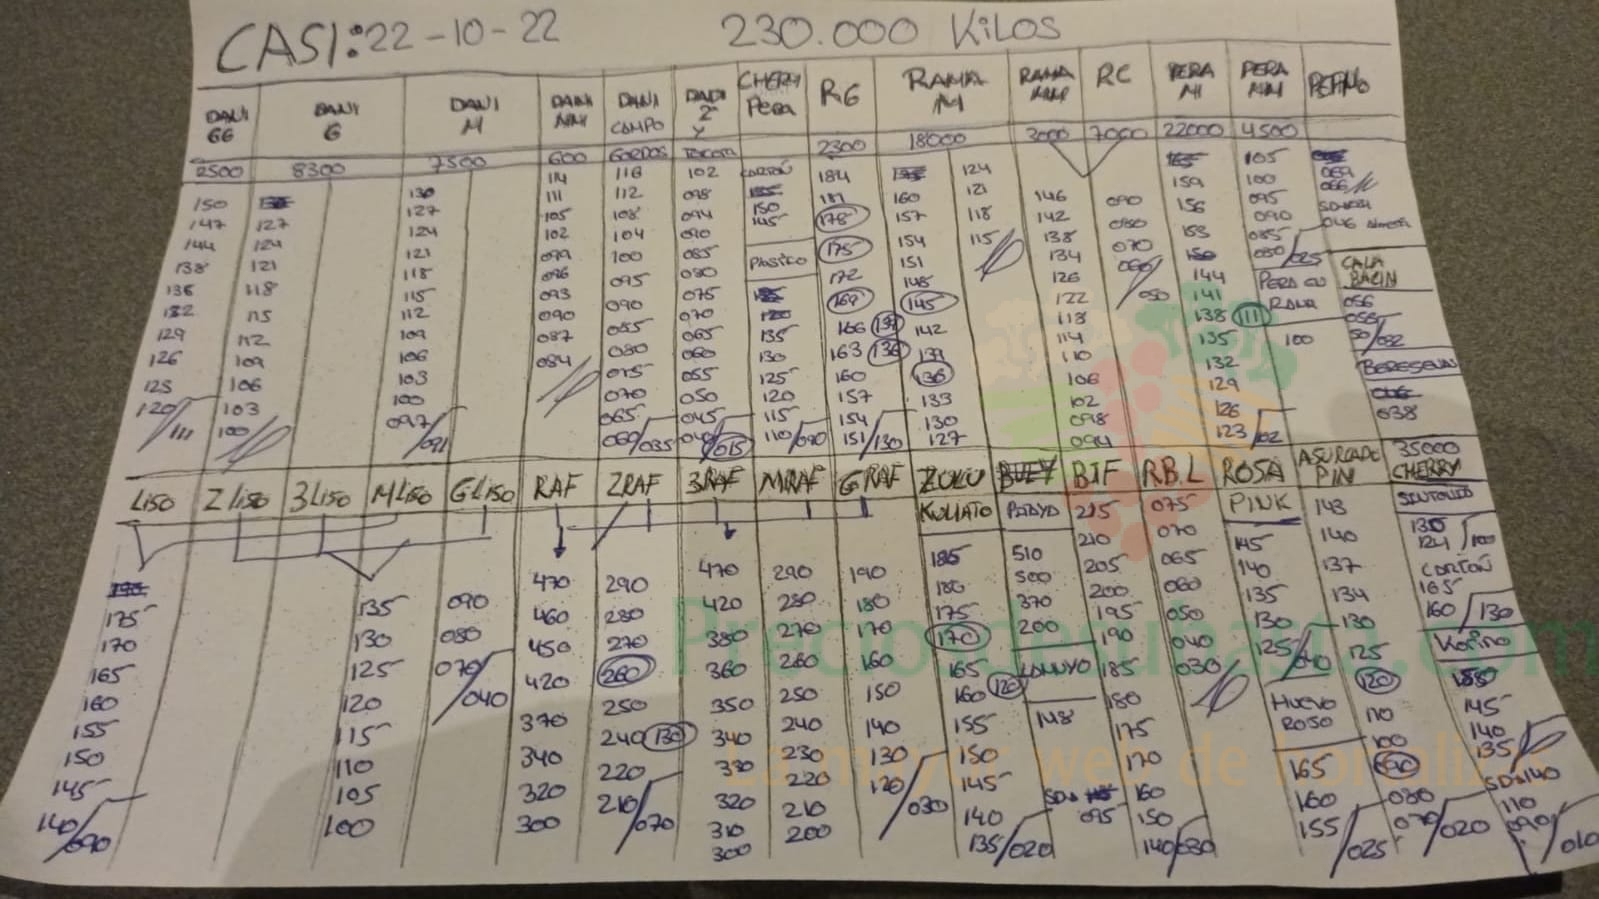 CASI: 22-10-22 230.000 Kilos
DANI GG DANI G DANI M DANI MM DANI CAMPO DADI 2ª Y CHERY Pera RG RAMA M RAMA MM RC PERA M PERA MM PEPINO
2500 8300 7500 600 GORDOS 2300 18000 3000 7000 22000 4500
150
147 127
144 124
138 121
118
132 115
129 112
126 109
123 106
120/111 103
100
130
127
124
121
118
115
112
109
106
103
100
097/091
114
111
105
102
099
096
093
090
087
084
116
112
108
104
100
095
090
085
080
075
070
065
060/035
102
098
094
090
085
080
075
070
065
060
055
050
045
040/015
CARTÓN
150
145
PLASTICO
135
130
125
120
115
110/090
184
181
178
175
172
169
166 139
163 136
160
157
154
151/130
160
157
154
151
148
145
142
139
136
133
130
127
124
121
118
115
146
142
138
134
126
122
118
114
110
106
102
098
094
090
080
070
060
050
159
156
153
150
144
141
138 111
135
132
129
126
123/02
105
100
095
090
085
080/025
PERA EN
RAMA
100
069
066
046
CALA
BACIN
056
055
50/032
BERENJENA
038
35000
LISO 2 LISO 3 LISO M LISO G LISO RAF 2RAF 3RAF MRAF GRAF ZUKU BUEY BIF RB.L ROSA ASURCADO PIN CHERRY
KUMATO PINK
175
170
165
160
155
150
145
140/090
135
130
125
120
115
110
105
100
090
080
070/040
470
460
450
420
370
340
320
300
290
280
270
260
250
240 130
220
210/070
470
420
380
360
350
340
330
320
310
300
290
280
270
260
250
240
230
220
210
200
190
180
170
160
150
140
130
120/030
185
180
175
170
165
160 120
155
150
145
140
135/020
510
500
370
200
148
215
210
205
200
195
190
185
180
175
170
160
150
140/030
095
075
070
065
060
050
040
030
145
140
135
130
125/040
HUEVO
ROSO
165
160
155/025
143
140
137
134
130
125
120
110
100
090
080
070/020
130
124/100
CARTÓN
165
160/130
KOPINO
145
140
135
140
110
090/010
Preciosdesubasta.com
La mayor web de hortalizas